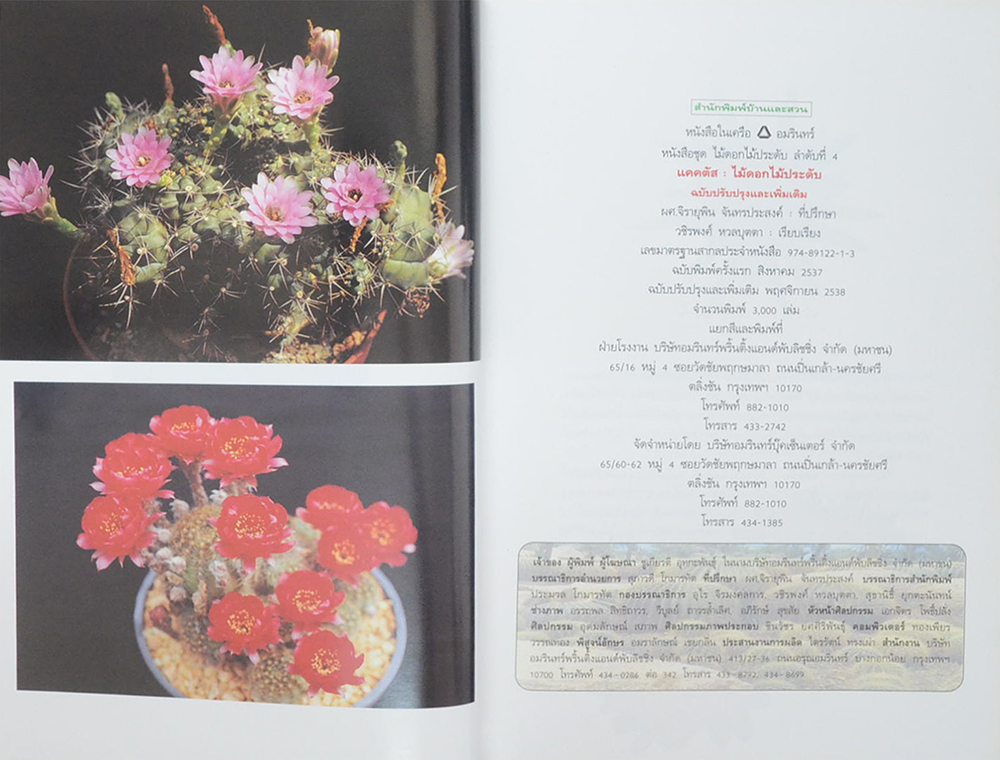 สำนักพิมพ์บ้านและสวน
หนังสือในเครือ อมรินทร์
หนังสือชุด ไม้ดอกไม้ประดับ ลำดับที่ 4
แคคตัส : ไม้ดอกไม้ประดับ
ฉบับปรับปรุงและเพิ่มเติม
ผศ.จิรายุพิน จันทรประสงค์ : ที่ปรึกษา
วชิรพงศ์ หวลบุตตา : เรียบเรียง
เลขมาตรฐานสากลประจำหนังสือ 974-89122-1-3
ฉบับพิมพ์ครั้งแรก สิงหาคม 2537
ฉบับปรับปรุงและเพิ่มเติม พฤศจิกายน 2538
จำนวนพิมพ์ 3,000 เล่ม
แยกสีและพิมพ์ที่
ฝ่ายโรงงาน บริษัทอมรินทร์พริ้นติ้งแอนด์พับลิชชิ่ง จำกัด (มหาชน)
65/16 หมู่ 4 ซอยวัดชัยพฤกษมาลา ถนนปิ่นเกล้า-นครชัยศรี
ตลิ่งชัน กรุงเทพฯ 10170
โทรศัพท์ 882-1010
โทรสาร 433-2742
จัดจำหน่ายโดย บริษัทอมรินทร์บุ๊คเซ็นเตอร์ จำกัด
65/60-62 หมู่ 4 ซอยวัดชัยพฤกษมาลา ถนนปิ่นเกล้า-นครชัยศรี
ตลิ่งชัน กรุงเทพฯ 10170
โทรศัพท์ 882-1010
โทรสาร 434-1385
เจ้าของ ผู้พิมพ์ ผู้โฆษณา ชูเกียรติ อุทกะพันธุ์ ในนามบริษัทอมรินทร์พริ้นติ้งแอนด์พับลิชชิ่ง จำกัด (มหาชน)
บรรณาธิการอำนวยการ สุภาวดี โกมารทัต ที่ปรึกษา ผศ.จิรายุพิน จันทรประสงค์ บรรณาธิการสำนักพิมพ์
ประมวล โกมารทัต กองบรรณาธิการ อุไร จิรมงคลการ, วชิรพงศ์ หวลบุตตา, สุธานิธิ์ ยุกตะนันทน์
ช่างภาพ อรรถพล สิทธิถาวร, วิบูลย์ ถาวรล้ำเลิศ, อภิรักษ์ สุขสัย หัวหน้าศิลปกรรม เอกจิตร โพธิ์ปลั่ง
ศิลปกรรม อุดมลักษณ์ สภาพ ศิลปกรรมภาพประกอบ ชินวัชร ยศศิริพันธุ์ คอมพิวเตอร์ ทองเพียร
วรรณทอง พิสูจน์อักษร อมราลักษณ์ เชยกลิ่น ประสานงานการผลิต ไตรรัตน์ ทรงเผ่า สำนักงาน บริษัท
อมรินทร์พริ้นติ้งแอนด์พับลิชชิ่ง จำกัด (มหาชน) 413/27-36 ถนนอรุณอมรินทร์ บางกอกน้อย กรุงเทพฯ
10700 โทรศัพท์ 434-0286 ต่อ 142 โทรสาร 433-8792, 434-8699